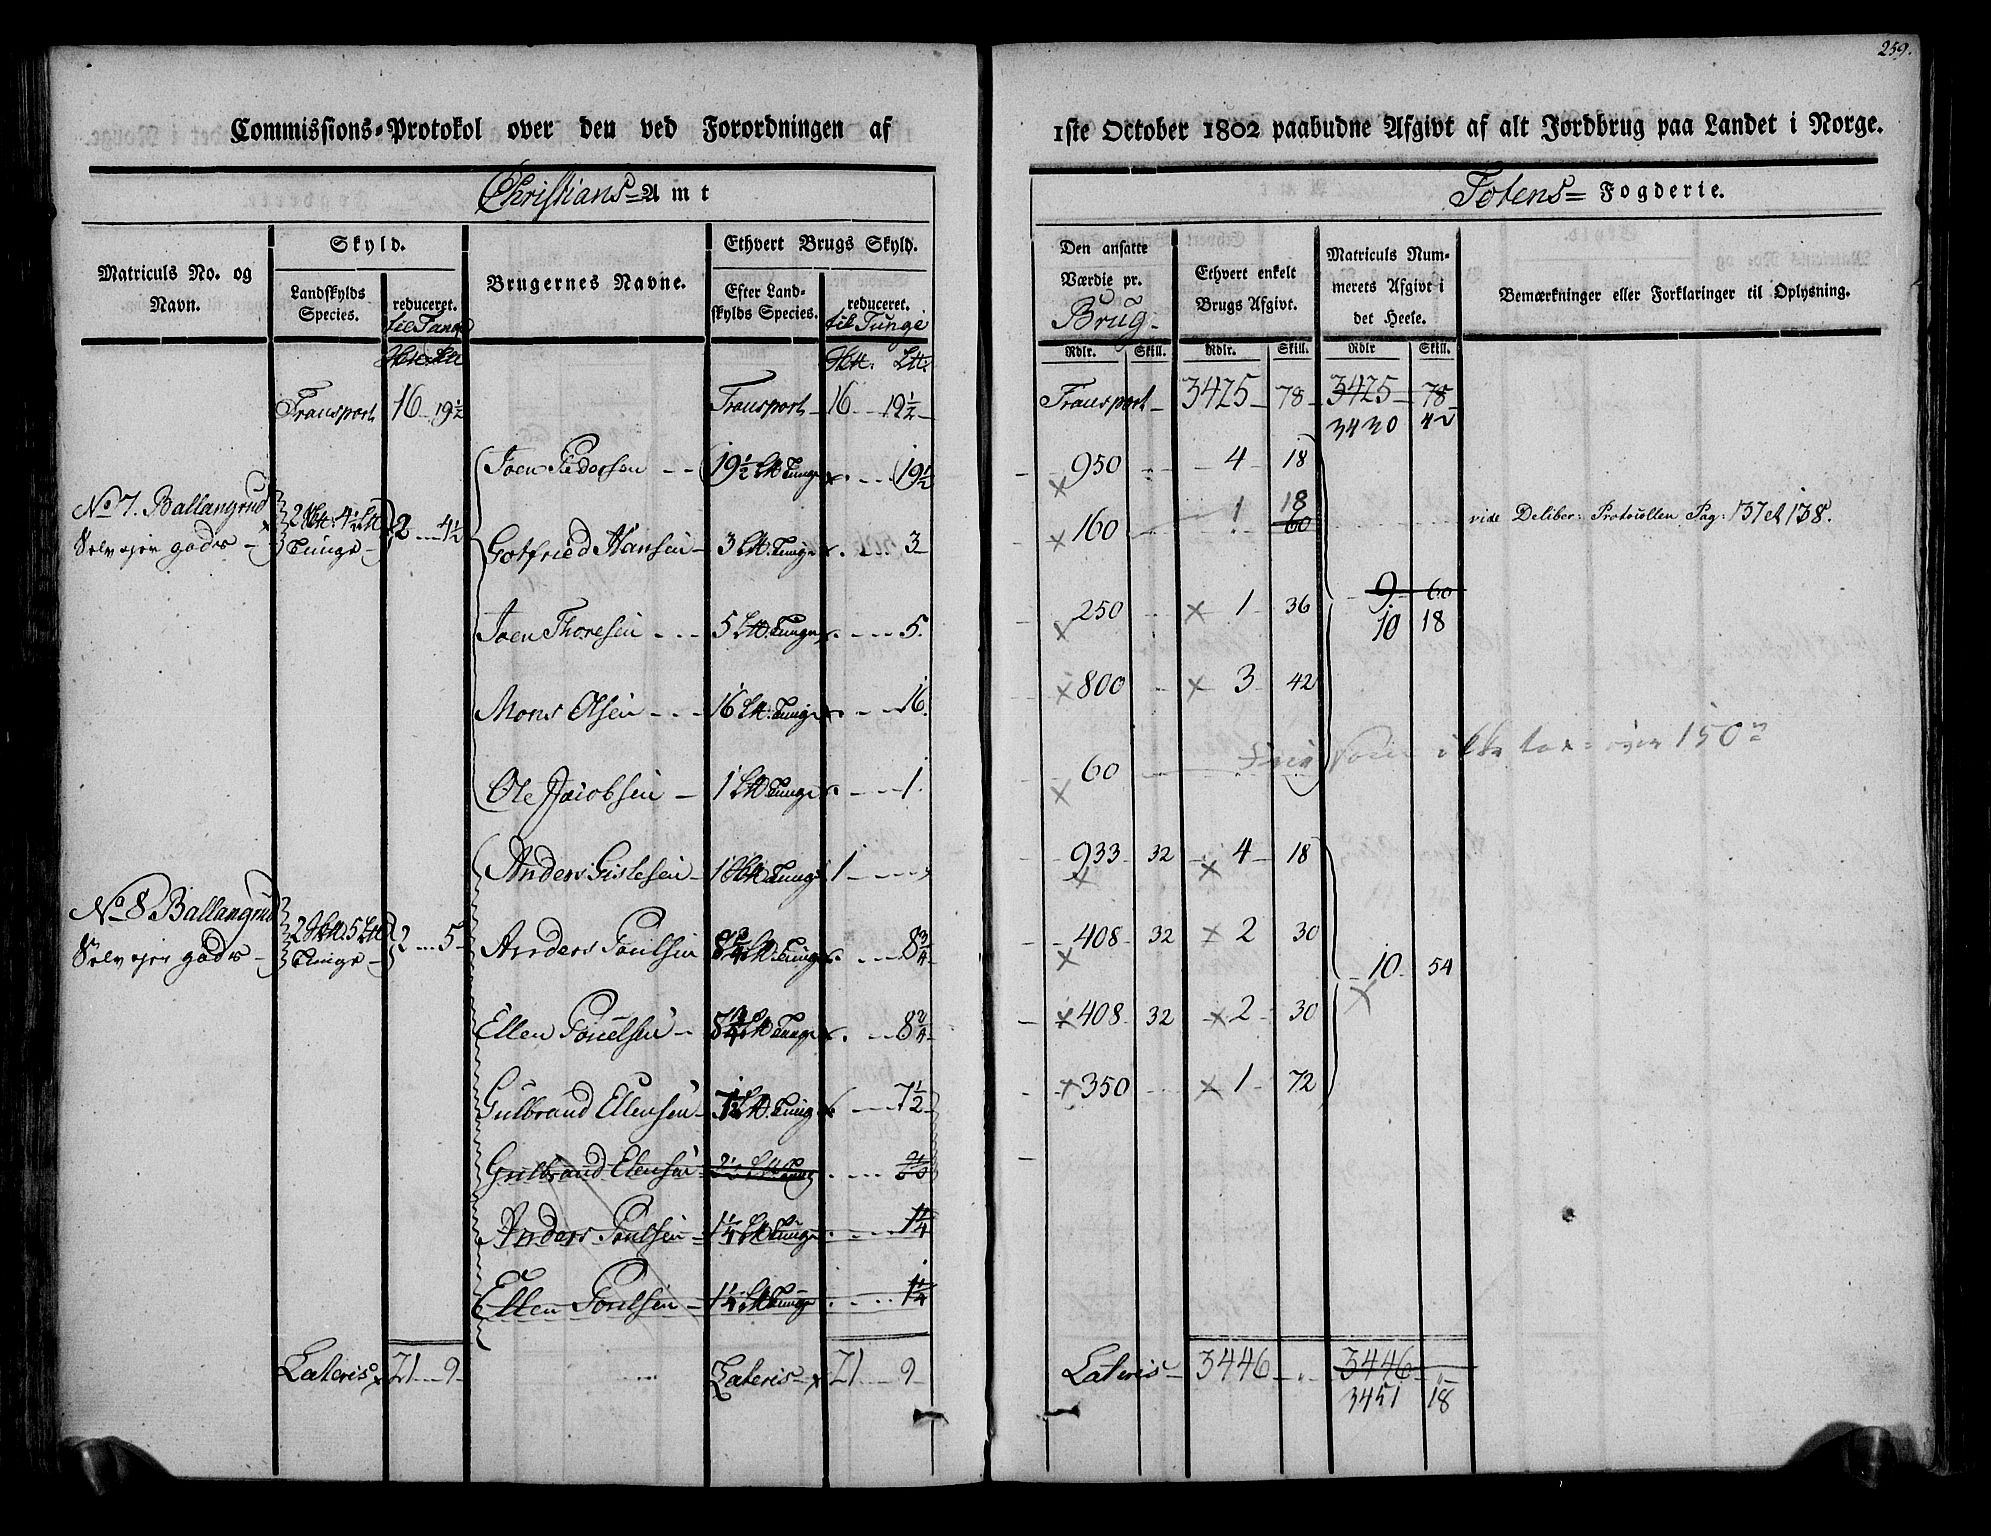 259.
Commissions-Protokol over den ved Forordningen af 1ste October 1802 paabudne Afgivt af alt Jordbrug paa Landet i Norge.
Christians- Amt
Totens- Fogderie.
Matriculs No. og Navn.
Skyld.
Landskylds Species.
reduceret. til Tunge
Brugernes Navne.
Ethvert Brugs Skyld.
Efter Landskylds Species.
reduceret. til Tunge
Den ansatte Værdie pr. Brug.
Ethvert enkelt Brugs Afgivt.
Matriculs Nummerets Afgivt i det Heele.
Bemærkninger eller Forklaringer til Oplysning.
Rdlr. Skill. Rdlr. Skill. Rdlr Skill.
Transport 16 19½ Transport 16 19½ Transport 3425 78 3425 78
3430 42
Joen Pedersen 19½ Ltt. Tunge 19½ 950 4 18
No 7. Ballangrud 2 4½ Tunge 2 4½
Selv ejer gods
Gotfried Hansen 3 Ltt. Tunge 3 160 1 18 60 vide Deliber: Protocollen Pag: 137 et 138.
Joen Thoresen 5 Ltt. Tunge 5. 250 1 36 9 60
10 18
Mons Olsen 16 Ltt. Tunge 16. 800 3 42
Ole Jacobsen 1 Ltt. Tunge 1. 60 Frie som ikke tax. over 150
Anders Gislesen 1 Tunge 1 933 32 4 18
No 8 Ballangrud 2 5 Tunge 2 5
Selv ejer gods
Anders Poulsen 8¾ Ltt. Tunge 8¾ 408 32 2 30 10 54
Ellen Poulsen 8¾ Ltt. Tunge 8¾ 408 32 2 30
Gulbrand Ellensen 7½ Ltt. Tunge 7½ 350 1 72
Gulbrand Elensen 2½ Ltt. Tunge
Anders Poulsen 1¼ Ltt. Tunge 1¼
Ellen Poulsen 1¼ Ltt. Tunge 1¼
Lateris 21 9 Lateris 21 9 Lateris 3446 3446
3451 18